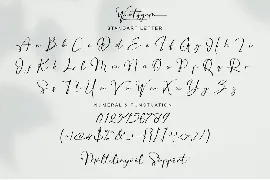 STANDART LETTER
A a B b C c D d E e F f G g H h I i
J j K k L l M m N n O o P p Q q R r
S s T t U u V v W w X x Y y Z z
NUMERAL & PUNCTUATION
0123456789
Multilingual Support